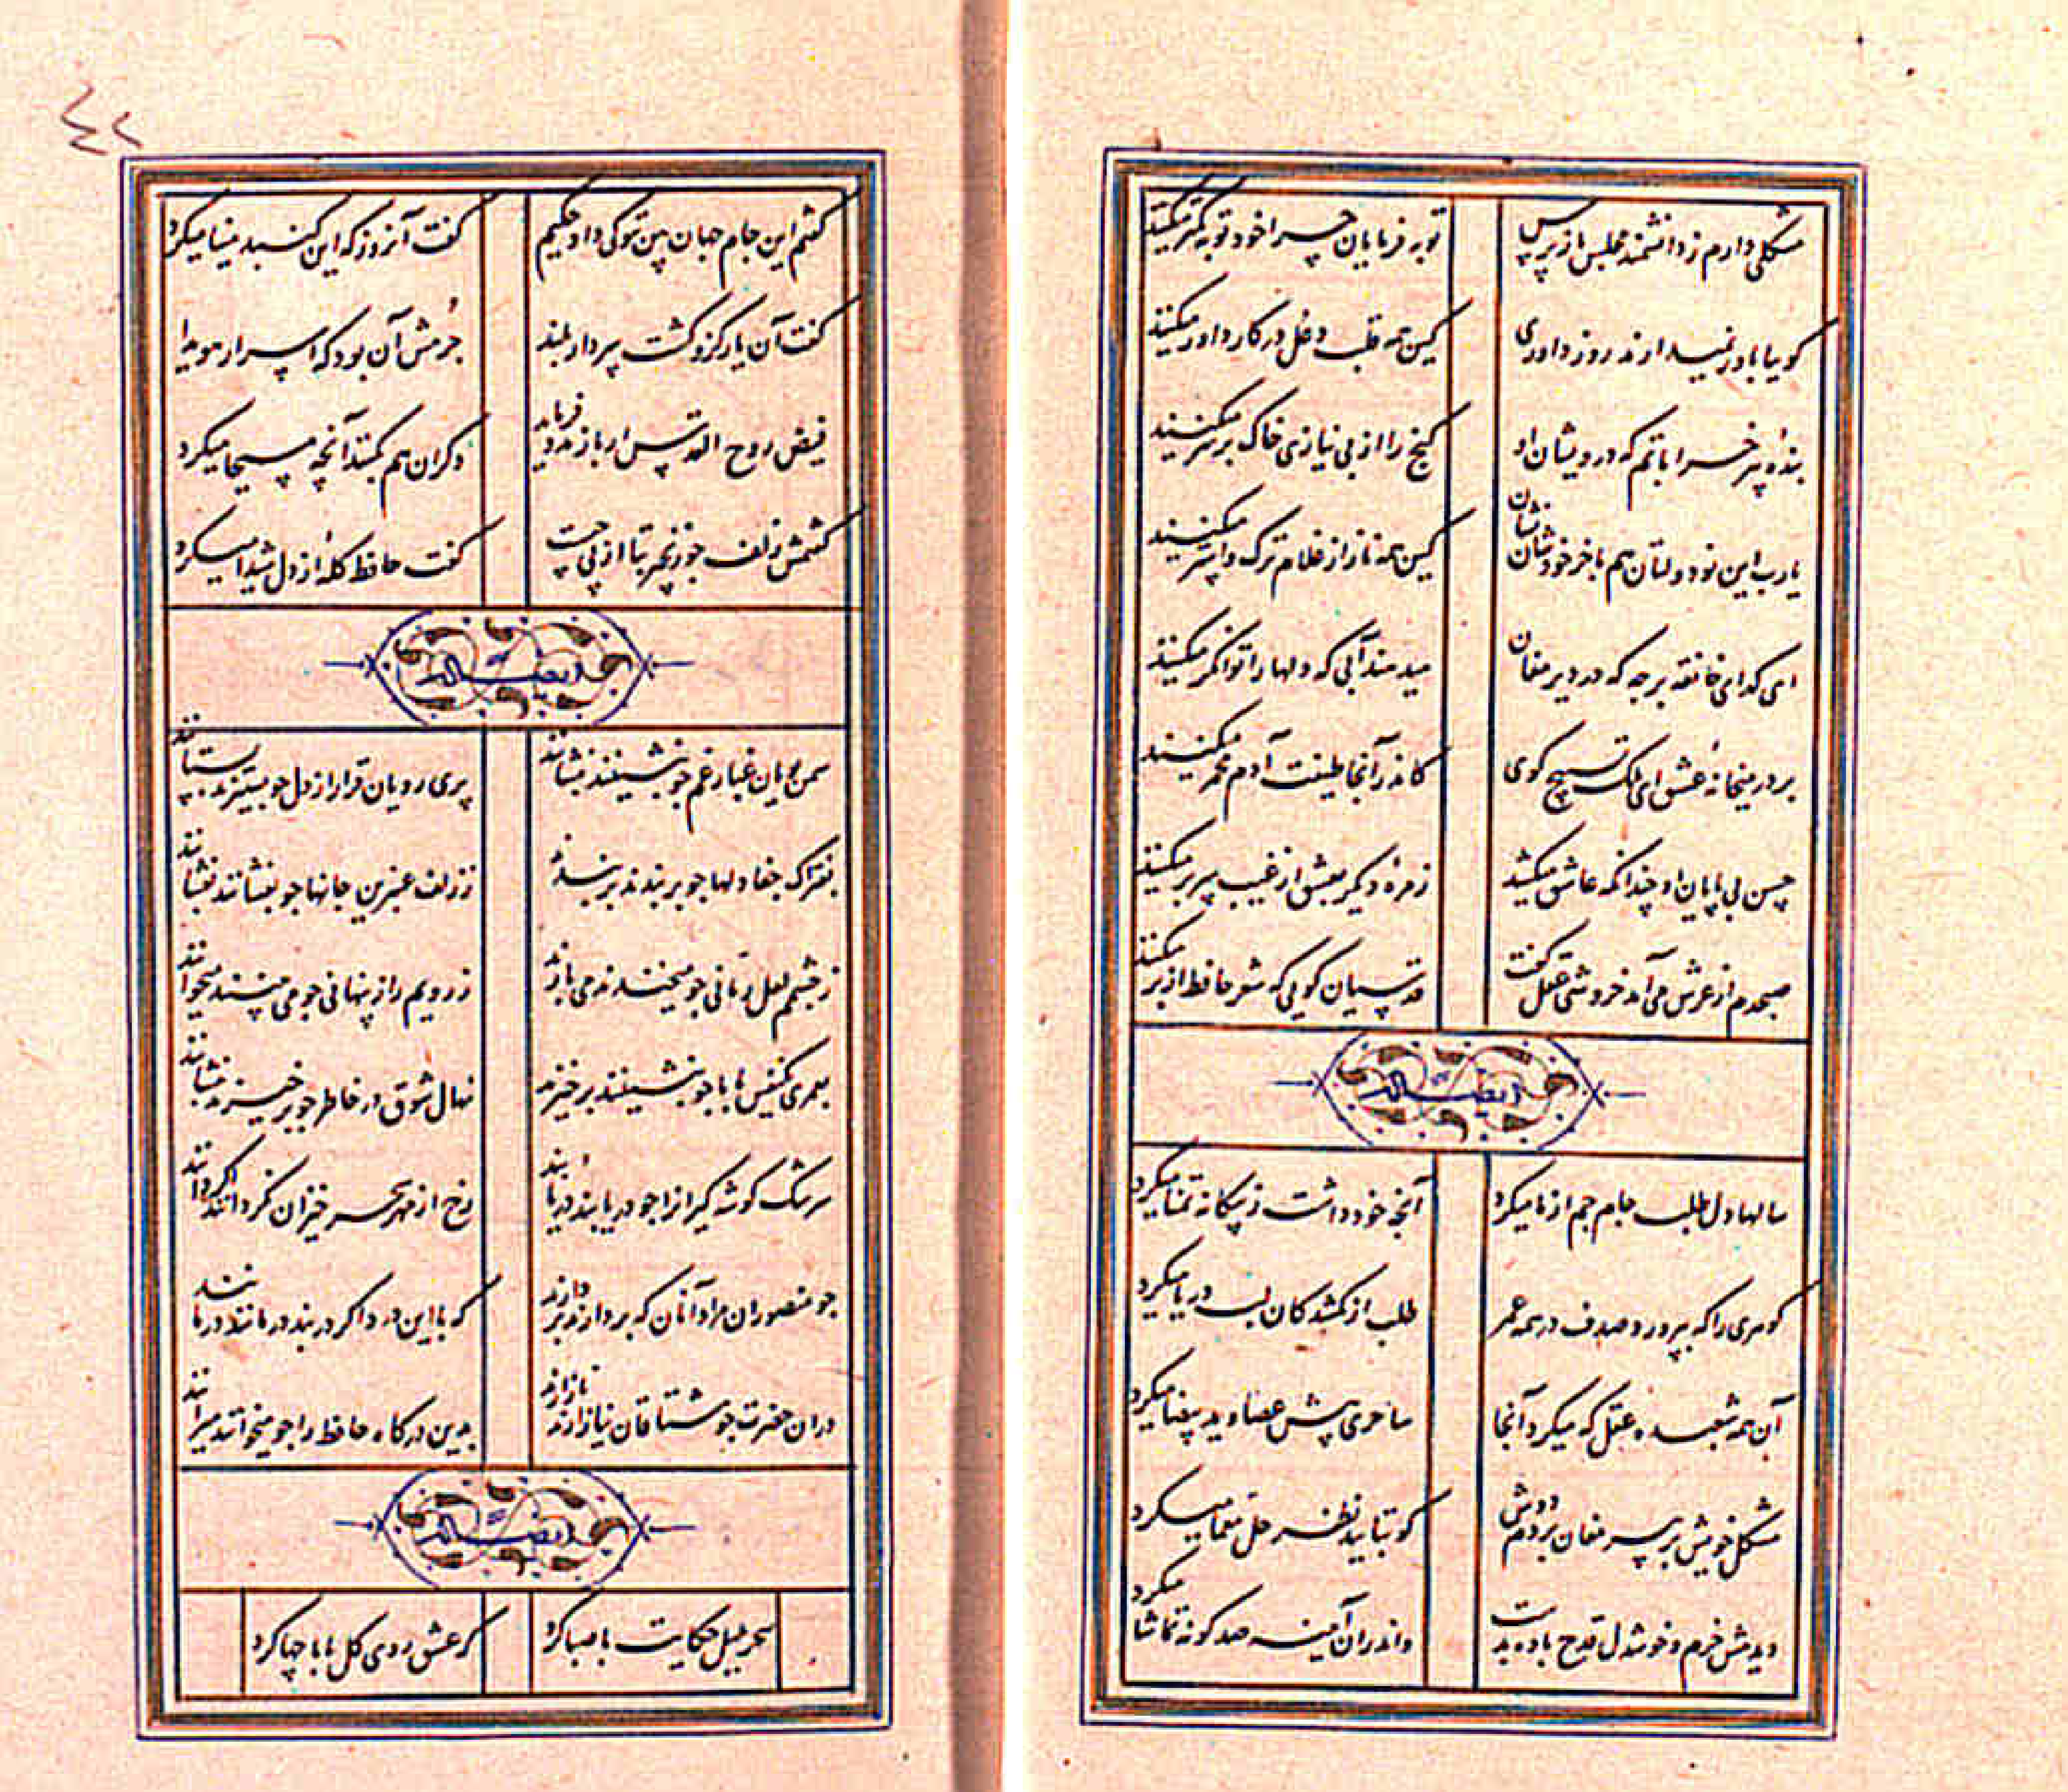 مشکلی دارم ز دانشمند مجلس بازپرس توبه فرمایان چرا خود توبه کمتر میکنند
کوییا باور نمیدارند روز داوری کین همه قلب و دغل در کار داور میکنند
بندهٔ پیر خراباتم که درویشان او کنج را از بی نیازی خاک بر سر میکنند
یارب این نودولتان هم با خر خودشان نشان کین همه ناز از غلام ترک و استر میکنند
ای کدای خانقه برجه که در دیر مغان میدهند آبی که دلها را توانکر میکنند
بر در میخانهٔ عشق ای ملک تسبیح کوی کاندر آنجا طینت آدم مخمر میکنند
حسن بی پایان او چندانکه عاشق میکشد زمرهٔ دیکر بعشق از غیب سر بر میکنند
صبحدم از عرش می آمد خروشی عقل کفت قدسیان کویی که شعر حافظ از بر میکنند
وله ایضا
سالها دل طلب جام جم از ما میکرد آنچه خود داشت ز بیکانه تمنا میکرد
کوهری را که بپرورد صدف در همه عمر طلب از کمشدکان لب دریا میکرد
آن همه شعبده عقل که میکرد آنجا ساحری پیش عصا و ید بیضا میکرد
مشکل خویش بر پیر مغان بردم دوش کو بتایید نظر حل معما میکرد
دیدمش خرم و خوشدل قدح باده بدست واندران آینه صد کونه تماشا میکرد
٤٢
کفتم این جام جهان بین بتو کی داد حکیم کفت آنروز که این کنبد مینا میکرد
کفت آن یار کزو کشت سر دار بلند جُرمش آن بود که اسرار هویدا
فیض روح القدس ار باز مدد فرماید دکران هم بکنند آنچه مسیحا میکرد
کفتمش زلف چو زنجیر بتا از پی چیست کفت حافظ کلهٔ از دل شیدا میکرد
وله ایضا
سمن بویان غبار غم جو بنشینند بنشانند پری رویان قرار از دل جو بستیزند بستانند
بفتراک جفا دلها جو بربندند بربندند ز زلف عنبرین جانها جو بفشانند بفشانند
ز چشمم لعل رمانی جو میخندند می بارند ز رویم راز پنهانی جو می بینند میخوانند
بعمری یکنفس با ما جو بنشینند برخیزند نهال شوق در خاطر جو برخیزند بنشانند
سرشک کوشه کیرانرا جو دریابند در یابند رخ از مهر سحر خیزان نکردانند اکر دانند
جو منصوران مراد آنان که بردارند بر دارند که با این درد اکر دربند درمانند درمانند
دران حضرت جو مشتاقان نیاز آرند ناز آرند بدین درکاه حافظ را جو میخوانند میرانند
وله ایضا
سحر بلبل حکایت با صبا کرد که عشق روی کل با ما جها کرد